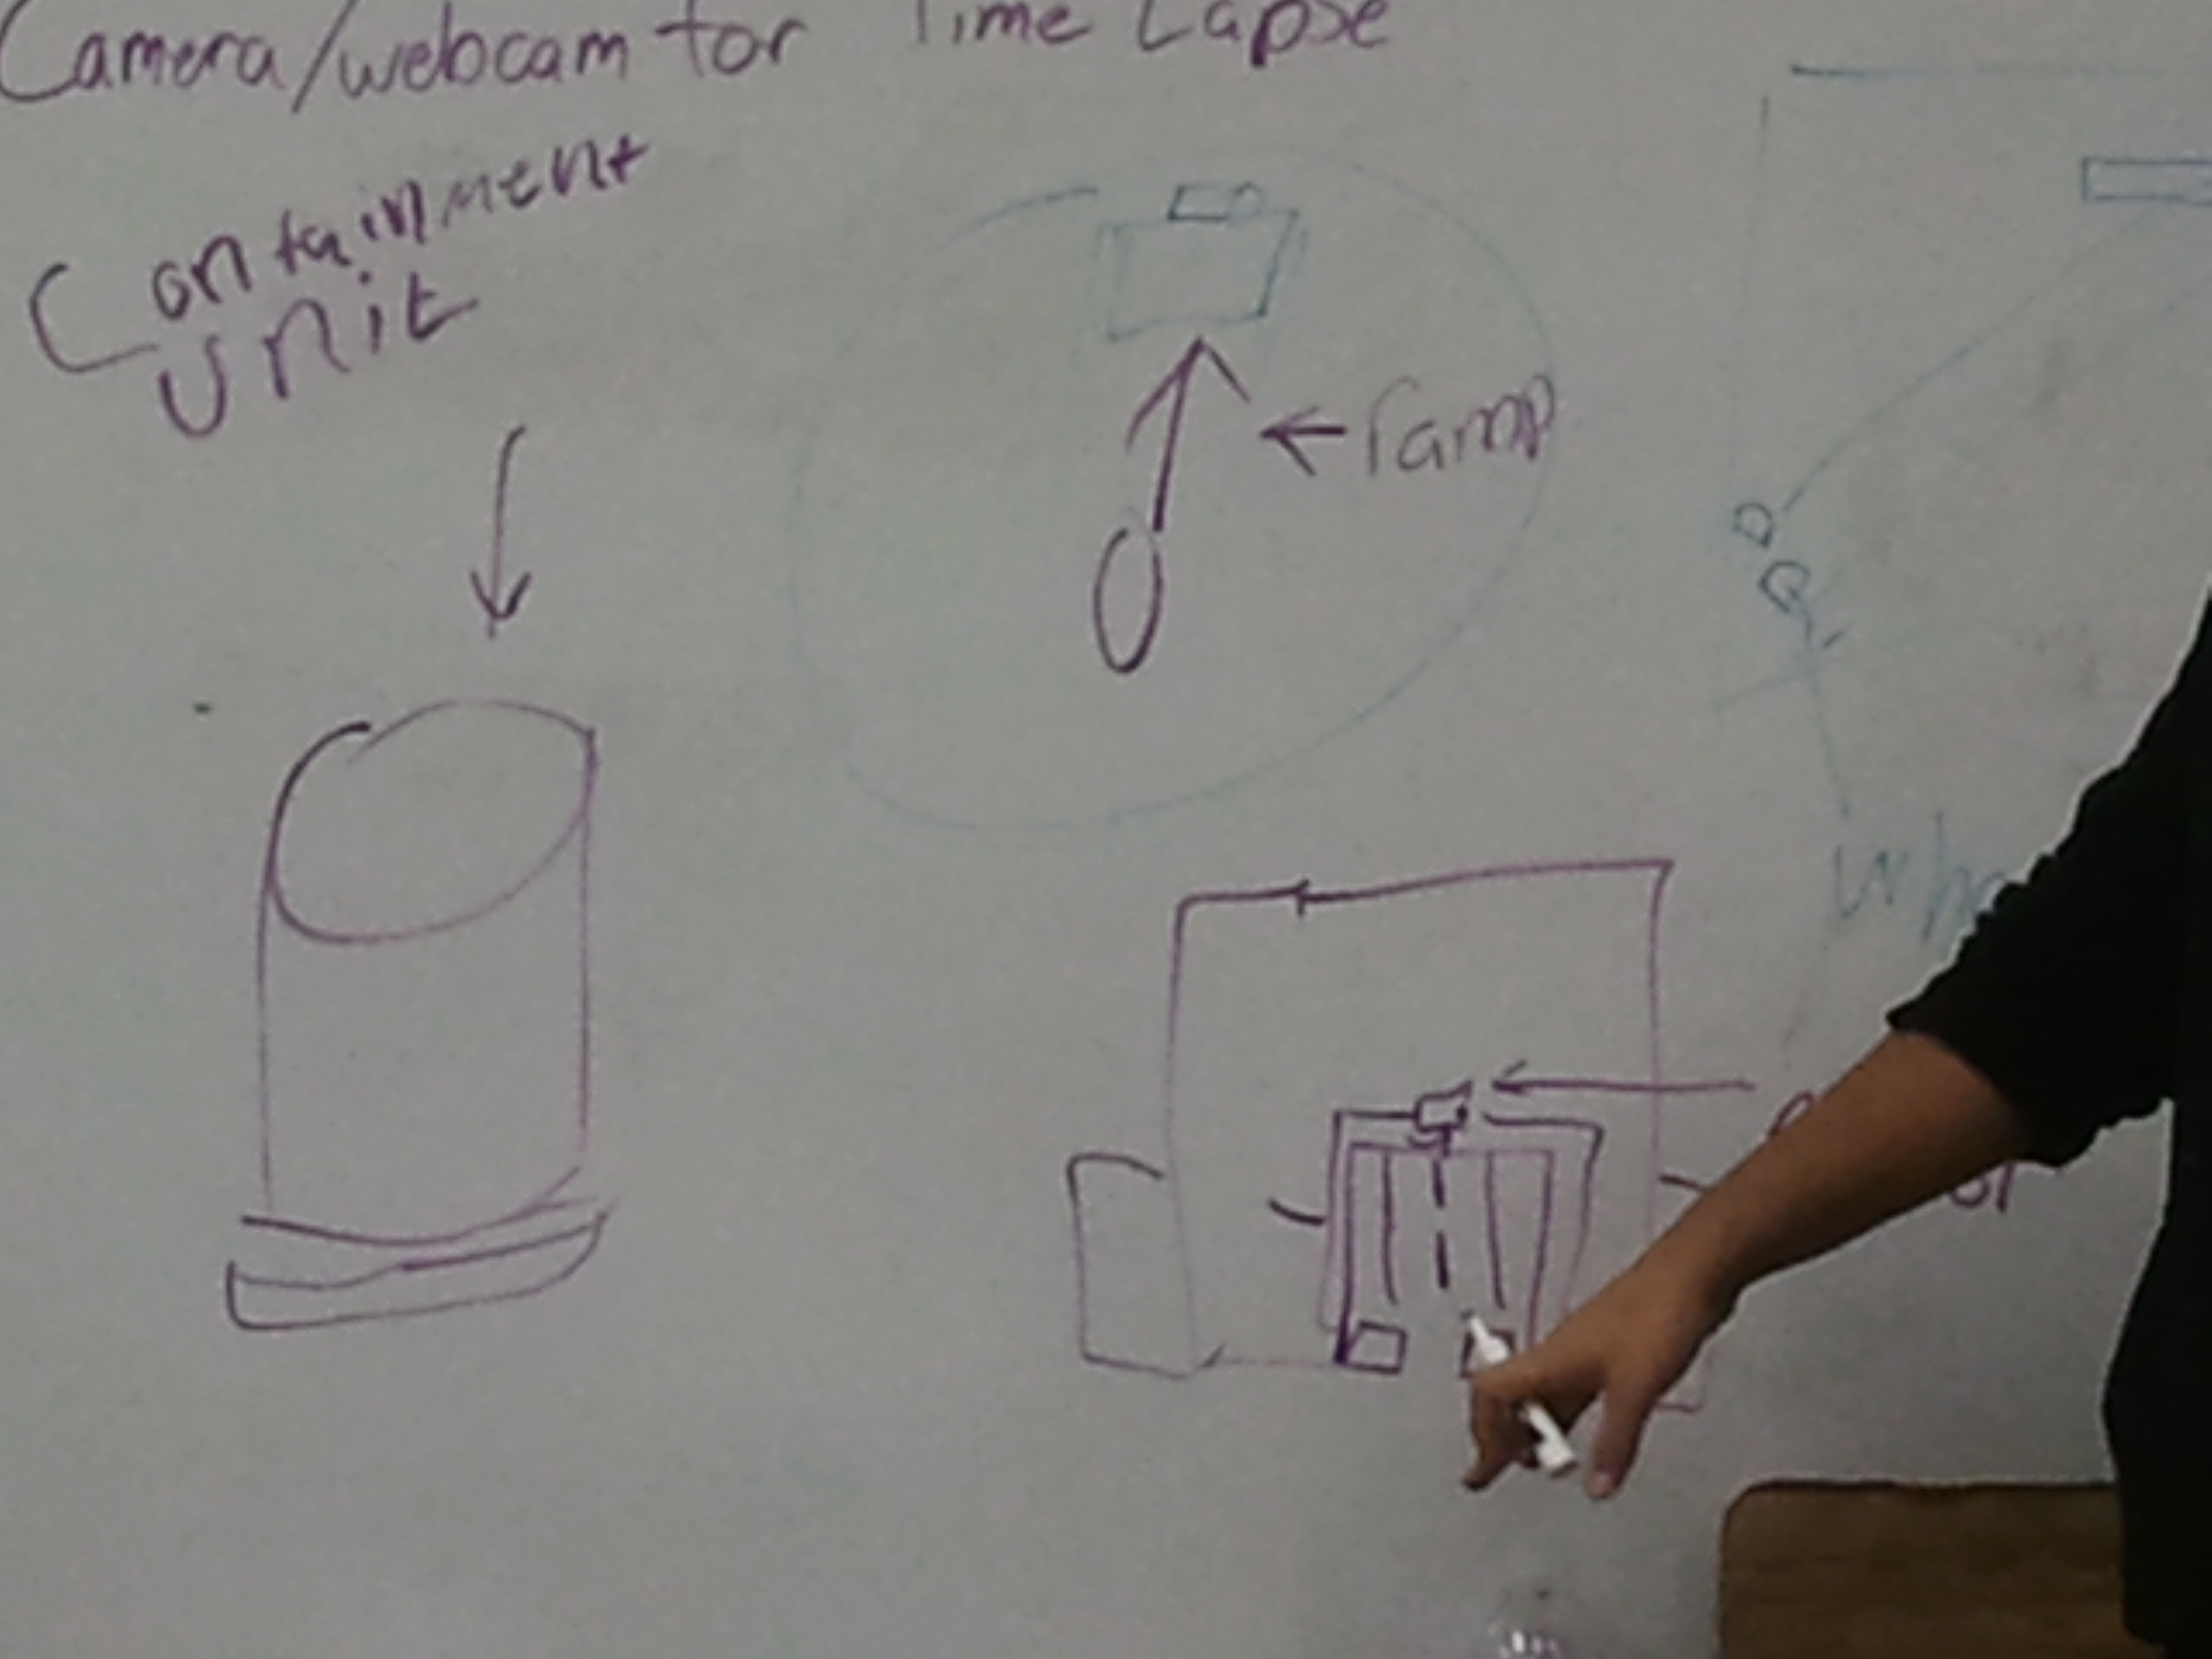 Camera/webcam for Time Lapse
Containment
Unit
←ramp